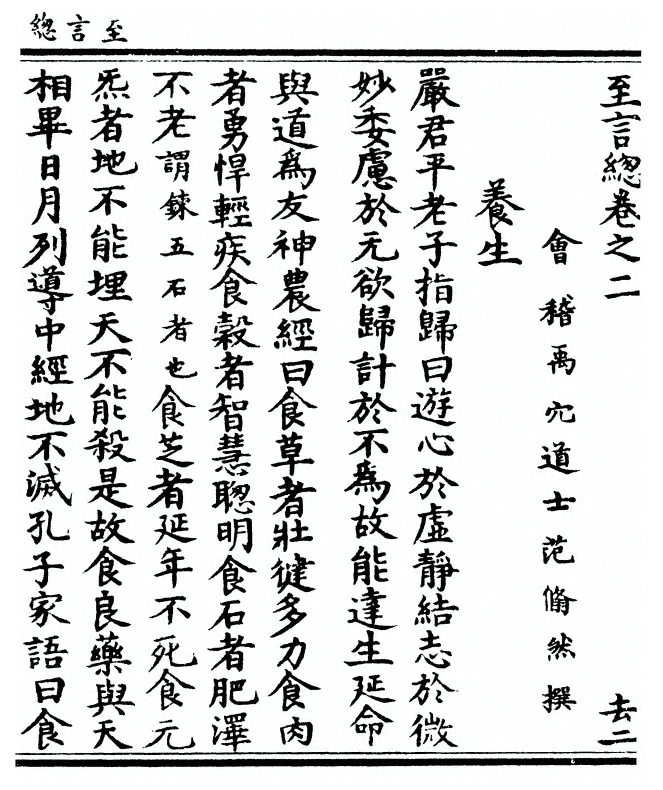 至言總
至言總卷之二　去二
會稽禹穴道士范翛然撰
養生
嚴君平老子指歸曰遊心於虛靜結志於微
妙委慮於无欲歸計於不爲故能達生延命
與道爲友神農經曰食草者壯健多力食肉
者勇悍輕疾食穀者智慧聰明食石者肥澤
不老謂鍊五石者也食芝者延年不死食元
炁者地不能埋天不能殺是故食良藥與天
相畢日月列導中經地不滅孔子家語曰食